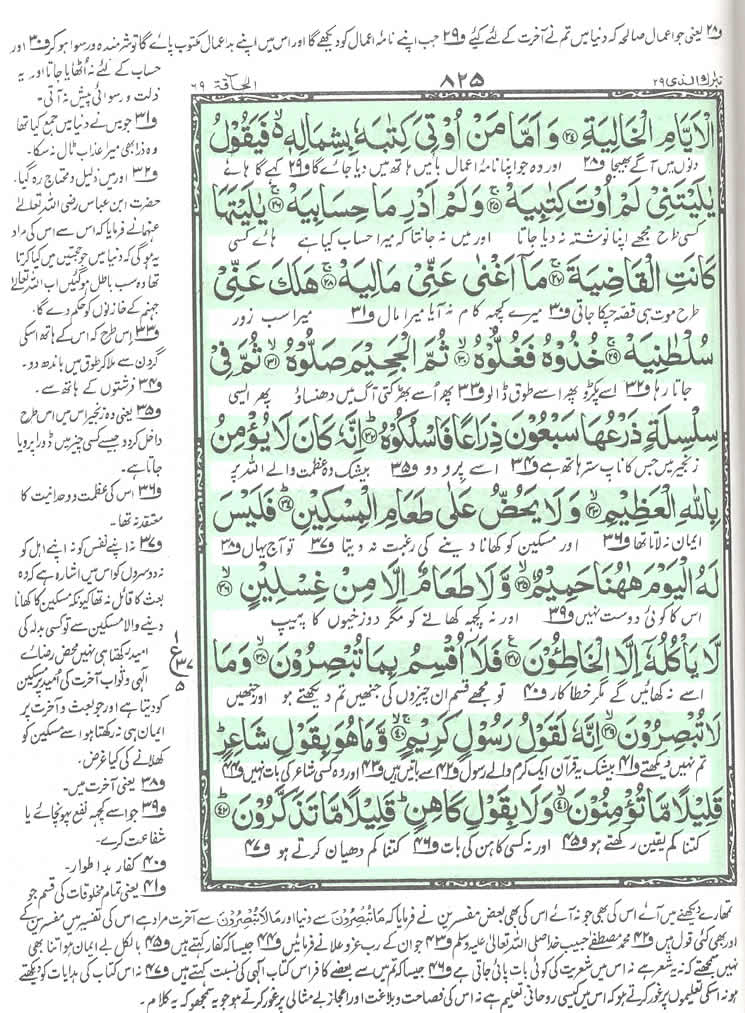 ف۲۸ یعنی جو اعمال صالحہ کہ دنیا میں تم نے آخرت کے لئے کیے ف۲۹ جب اپنے نامۂ اعمال کو دیکھے گا اور اس میں اپنے بد اعمال مکتوب پائے گا تو شرمندہ و رسوا ہو کر ف۳۰ اور
تبٰرك الذی ۲۹
۸۲۵
الحآقة ۶۹
الْاَیَّامِ الْخَالِیَةِ ﴿۲۴﴾ وَ اَمَّا مَنْ اُوْتِیَ كِتٰبَهٗ بِشِمَالِهٖ فَیَقُوْلُ
دنوں میں آگے بھیجا ف۲۸ اور وہ جو اپنا نامۂ اعمال بائیں ہاتھ میں دیا جائے گا ف۲۹ کہے گا ہائے
یٰلَیْتَنِیْ لَمْ اُوْتَ كِتٰبِیَهْ ﴿۲۵﴾ وَ لَمْ اَدْرِ مَا حِسَابِیَهْ ﴿۲۶﴾ یٰلَیْتَهَا
کسی طرح مجھے اپنا نوشتہ نہ دیا جاتا اور میں نہ جانتا کہ میرا حساب کیا ہے ہائے کسی
كَانَتِ الْقَاضِیَةَ ﴿۲۷﴾ مَاۤ اَغْنٰی عَنِّیْ مَالِیَهْ ﴿۲۸﴾ هَلَكَ عَنِّیْ
طرح موت ہی قصہ چکا جاتی ف۳۰ میرے کچھ کام نہ آیا میرا مال ف۳۱ میرا سب زور
سُلْطٰنِیَهْ ﴿۲۹﴾ خُذُوْهُ فَغُلُّوْهُ ﴿۳۰﴾ ثُمَّ الْجَحِیْمَ صَلُّوْهُ ﴿۳۱﴾ ثُمَّ فِیْ
جاتا رہا ف۳۲ اسے پکڑو پھر اسے طوق ڈالو ف۳۳ پھر اسے بھڑکتی آگ میں دھنساؤ پھر ایسی
سِلْسِلَةٍ ذَرْعُهَا سَبْعُوْنَ ذِرَاعًا فَاسْلُكُوْهُ ﴿۳۲﴾ اِنَّهٗ كَانَ لَا یُؤْمِنُ
زنجیر میں جس کا ناپ ستر ہاتھ ہے ف۳۴ اسے پرو دو ف۳۵ بیشک وہ عظمت والے اللہ پر
بِاللّٰهِ الْعَظِیْمِ ﴿۳۳﴾ وَ لَا یَحُضُّ عَلٰی طَعَامِ الْمِسْكِیْنِ ﴿۳۴﴾ فَلَیْسَ
ایمان نہ لاتا تھا ف۳۶ اور مسکین کو کھانا دینے کی رغبت نہ دیتا ف۳۷ تو آج یہاں ف۳۸
لَهُ الْیَوْمَ هٰهُنَا حَمِیْمٌ ﴿۳۵﴾ وَّ لَا طَعَامٌ اِلَّا مِنْ غِسْلِیْنٍ ﴿۳۶﴾
اس کا کوئی دوست نہیں ف۳۹ اور نہ کچھ کھانے کو مگر دوزخیوں کا پیپ
لَّا یَاْكُلُهٗۤ اِلَّا الْخَاطِـُٔوْنَ ﴿۳۷﴾ فَلَاۤ اُقْسِمُ بِمَا تُبْصِرُوْنَ ﴿۳۸﴾ وَ مَا
اسے نہ کھائیں گے مگر خطاکار ف۴۰ تو مجھے قسم ان چیزوں کی جنھیں تم دیکھتے ہو اور جنھیں
لَا تُبْصِرُوْنَ ﴿۳۹﴾ اِنَّهٗ لَقَوْلُ رَسُوْلٍ كَرِیْمٍ ﴿۴۰﴾ وَّ مَا هُوَ بِقَوْلِ شَاعِرٍ
تم نہیں دیکھتے ف۴۱ بیشک یہ قرآن ایک کرم والے رسول ف۴۲ سے باتیں ہیں ف۴۳ اور وہ کسی شاعر کی بات نہیں ف۴۴
قَلِیْلًا مَّا تُؤْمِنُوْنَ ﴿۴۱﴾ وَ لَا بِقَوْلِ كَاهِنٍ قَلِیْلًا مَّا تَذَكَّرُوْنَ ﴿۴۲﴾
کتنا کم یقین رکھتے ہو ف۴۵ اور نہ کسی کاہن کی بات ف۴۶ کتنا کم دھیان کرتے ہو ف۴۷
حساب کے لئے نہ اُٹھایا جاتا اور یہ
ذلت و رسوائی پیش نہ آتی۔
ف۳۱ جو میں نے دنیا میں جمع کیا تھا
وہ ذرا بھی میرا عذاب ٹال نہ سکا۔
ف۳۲ اور میں ذلیل و محتاج رہ گیا،
حضرت ابن عباس رضی اللہ تعالیٰ
عنہما نے فرمایا کہ اس سے اس کی مراد
یہ ہوگی کہ دنیا میں جو حجتیں میں کیا کرتا
تھا وہ سب باطل ہوگئیں اب اللہ تعالیٰ
جہنم کے خازنوں کو حکم دے گا۔
ف۳۳ اس طرح کہ اس کے ہاتھ اسکی
گردن سے ملا کر طوق میں باندھ دو۔
ف۳۴ فرشتوں کے ہاتھ سے۔
ف۳۵ یعنی وہ زنجیر اس میں اس طرح
داخل کردو جیسے کسی چیز میں ڈورا پرویا
جاتا ہے۔
ف۳۶ اس کی عظمت و وحدانیت کا
معتقد نہ تھا۔
ف۳۷ نہ اپنے نفس کو نہ اپنے اہل کو
نہ دوسروں کو اس میں اشارہ ہے کہ وہ
بعث کا قائل نہ تھا کیونکہ مسکین کا کھانا
دینے والا مسکین سے تو کسی بدلہ کی
امید رکھتا ہی نہیں محض رضائے
الٰہی و ثواب آخرت کی امید پر مسکین
کو دیتا ہے اور جو بعث و آخرت پر
ایمان ہی نہ رکھتا ہو اسے مسکین کو
کھلانے کی کیا غرض۔
ف۳۸ یعنی آخرت میں۔
ف۳۹ جو اسے کچھ نفع پہونچائے یا
شفاعت کرے۔
ف۴۰ کفار بد اطوار۔
ف۴۱ یعنی تمام مخلوقات کی قسم جو
۱
ع ۳۷
۵
تمھارے دیکھنے میں آئے اس کی بھی جو نہ آئے اس کی بھی بعض مفسرین نے فرمایا کہ مَا تُبْصِرُوْنَ سے دنیا اور مَا لَا تُبْصِرُوْنَ سے آخرت مراد ہے اس کی تفسیر میں مفسرین کے
اور بھی کئی قول ہیں ف۴۲ محمد مصطفےٰ حبیب خدا صلی اللہ تعالیٰ علیہ وسلم ف۴۳ جو ان کے رب عزوعلا نے فرمائیں ف۴۴ جیسا کہ کفار کہتے ہیں ف۴۵ بالکل بے ایمان ہو اتنا بھی
نہیں سمجھتے کہ نہ یہ شعر ہے نہ اس میں شعریت کی کوئی بات پائی جاتی ہے ف۴۶ جیسا کہ تم میں سے بعضے کافر اس کتاب الٰہی کی نسبت کہتے ہیں ف۴۷ نہ اس کتاب کی ہدایات کو دیکھتے
ہو نہ اسکی تعلیموں پر غور کرتے ہو کہ اس میں کیسی روحانی تعلیم ہے نہ اس کی فصاحت و بلاغت اور اعجاز بے مثالی پر غور کرتے ہو جو یہ سمجھو کہ یہ کلام۔